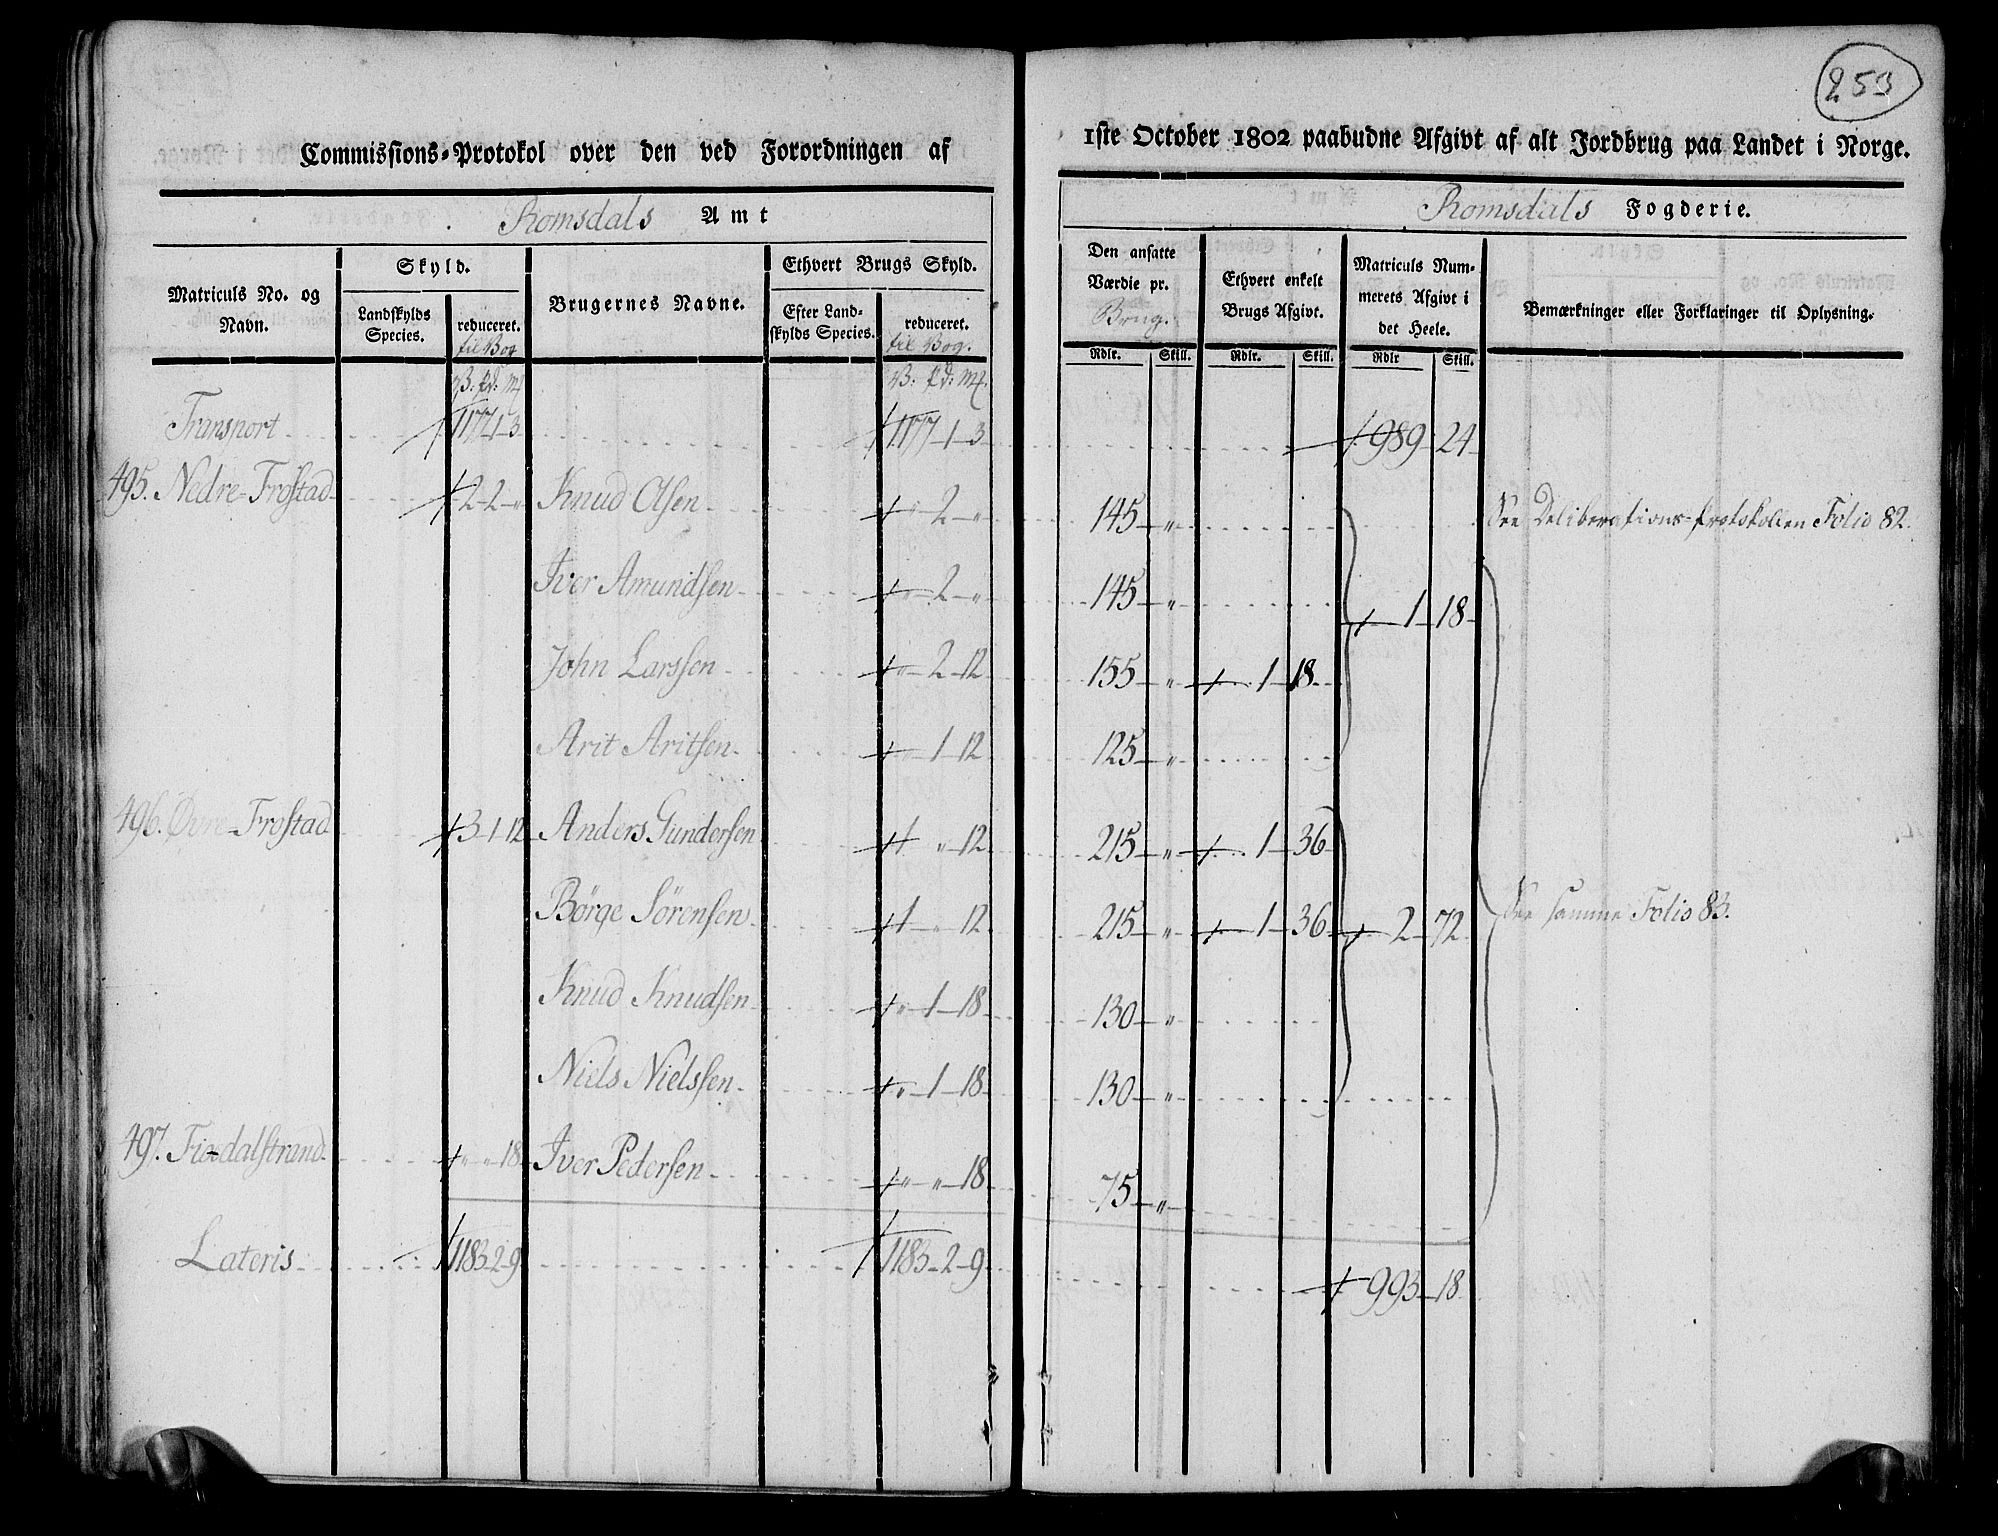 253
Commissions-Protokol over den ved Forordningen af 1ste October 1802 paabudne Afgivt af alt Jordbrug paa Landet i Norge.
Romsdals Amt
Romsdals Fogderie.
Matriculs No. og Navn.
Skyld.
Landskylds Species.
reduceret. til Vog
Brugernes Navne.
Ethvert Brugs Skyld.
Efter Landskylds Species.
reduceret. til Vog.
Den ansatte Værdie pr. Brug.
Ethvert enkelt Brugs Afgivt.
Matriculs Nummerets Afgivt i det Heele.
Bemærkninger eller Forklaringer til Oplysning.
Rdlr. Skill. Rdlr. Skill. Rdlr Skill.
V: pd: m V: pd: m
Transport 1177-1-3 1177-1-3 989-24
495. Nedre-Frostad 2-2-" Knud Olsen "-2-" 145-" See Deliberations-Protokollen Folio 82.
Iver Amundsen "-2-" 145-" 1-18
John Larssen "-2-12 155-" 1-18
Arit Aritsen "-1-12 125-"
496. Øvre-Frostad 3-1-12 Anders Gundersen 1-"-12 215-" 1-36
Børge Sørensen 1-"-12 215-" 1-36 2-72 See samme Folio 83.
Knud Knudsen "-1-18 130-"
Niels Nielssen "-1-18 130-"
497. "-"-18 Iver Pedersen "-"-18 75-"
Lateris 1183-2-9 1183-2-9 993-18